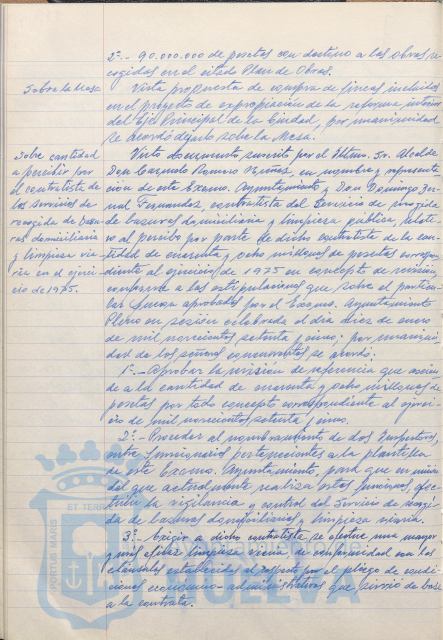 2º.- 90.000.000 de pesetas con destino a las obras re-
cogidas en el citado Plan de Obras.
Sobre la Mesa
Vista propuesta de compra de fincas incluidas
en el proyecto de expropiación de la reforma interior
del Eje Principal de la Ciudad, por unanimidad
se acordó dejarlo sobre la Mesa.
Sobre cantidad
a percibir por
el contratista de
los servicios de
recogida de basu-
ras domiciliaria
y limpieza via-
ria en el ejerci-
cio de 1975.
Visto documento suscrito por el Iltmo. Sr. Alcalde
Don Carmelo Romero Núñez, en nombre y representa-
ción de este Excmo. Ayuntamiento y Don Domingo
Fernandez, contratista del Servicio de recogida
de basuras domiciliaria y limpieza pública, relati-
vo al percibo por parte de dicho contratista de la can-
tidad de cuarenta y ocho millones de pesetas correspon-
diente al ejercicio de 1975 en concepto de revisión,
conforme a las estipulaciones que sobre el particu-
lar fueron aprobadas por el Excmo. Ayuntamiento
Pleno en sesión celebrada el día diez de enero
de mil novecientos setenta y cinco; por unanimi-
dad de los señores concurrentes se acordó:
1º.- Aprobar la revisión de referencia que ascien-
de a la cantidad de cuarenta y ocho millones de
pesetas por todo concepto correspondiente al ejerci-
cio de mil novecientos setenta y cinco.
2º.- Proceder al nombramiento de dos Inspectores,
entre funcionarios pertenecientes a la plantilla
de este Excmo. Ayuntamiento, para que en unión
del que actualmente realiza estas funciones, efec-
túen la vigilancia y control del Servicio de recogi-
da de basuras domiciliarias y limpieza viaria.
3º.- Exigir a dicho contratista se efectue una mayor
y más eficaz limpieza viaria de conformidad con las
cláusulas establecidas al respecto por el pliego de condi-
ciones económico-administrativas que sirvió de base
a la contrata.
PORTUS MARIS
ET TERR
HUELVA